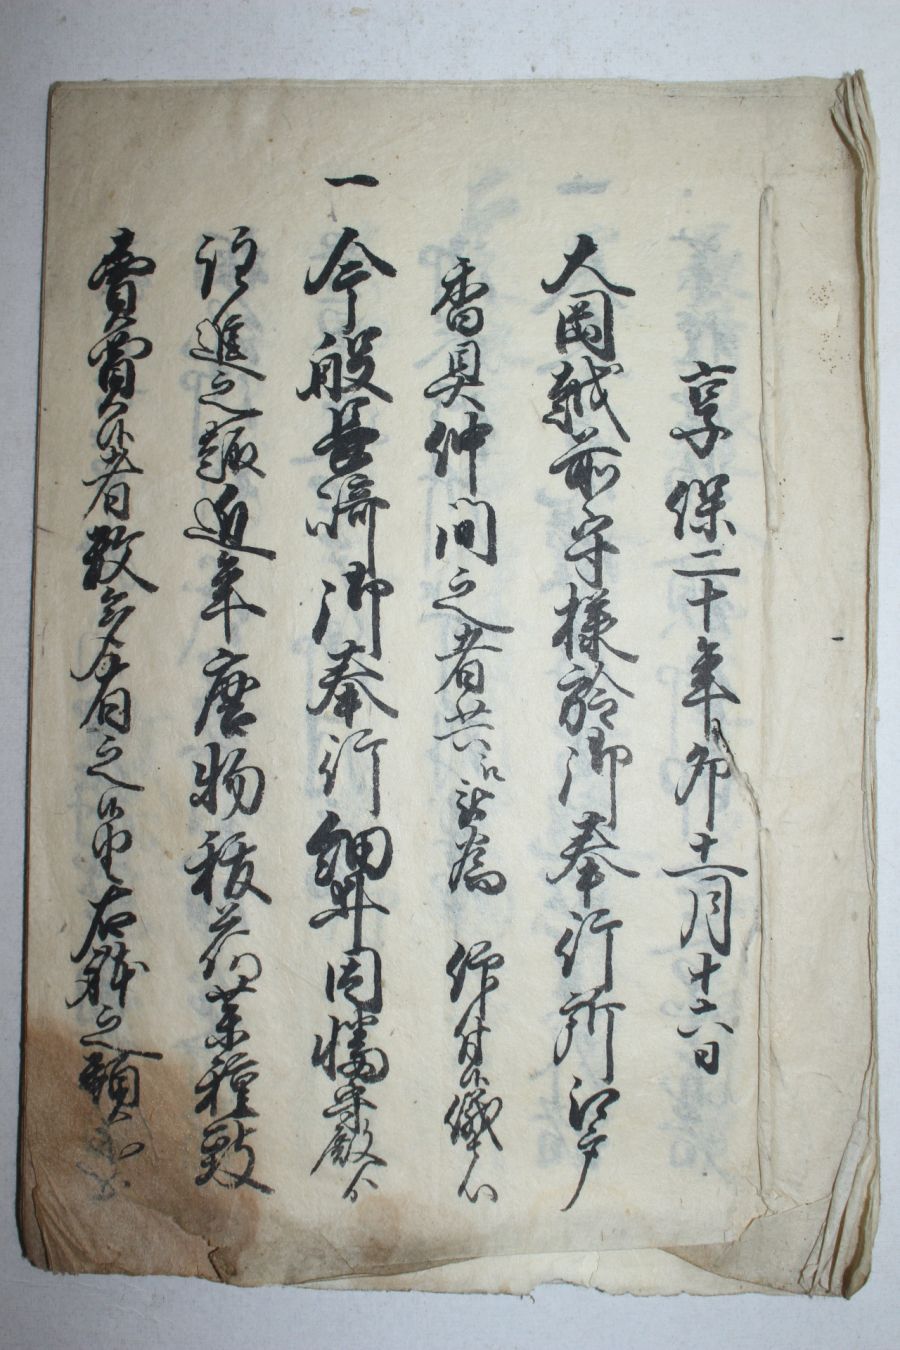 享保二十年卯十一月十六日
大岡越前守様於御奉行所江戸
香具仲間之者共被為 仰付候儀
一 今般長崎御奉行細井因幡守殿
注進之趣近年唐物抜荷薬種致
売買候者数多有之候由右躰之類